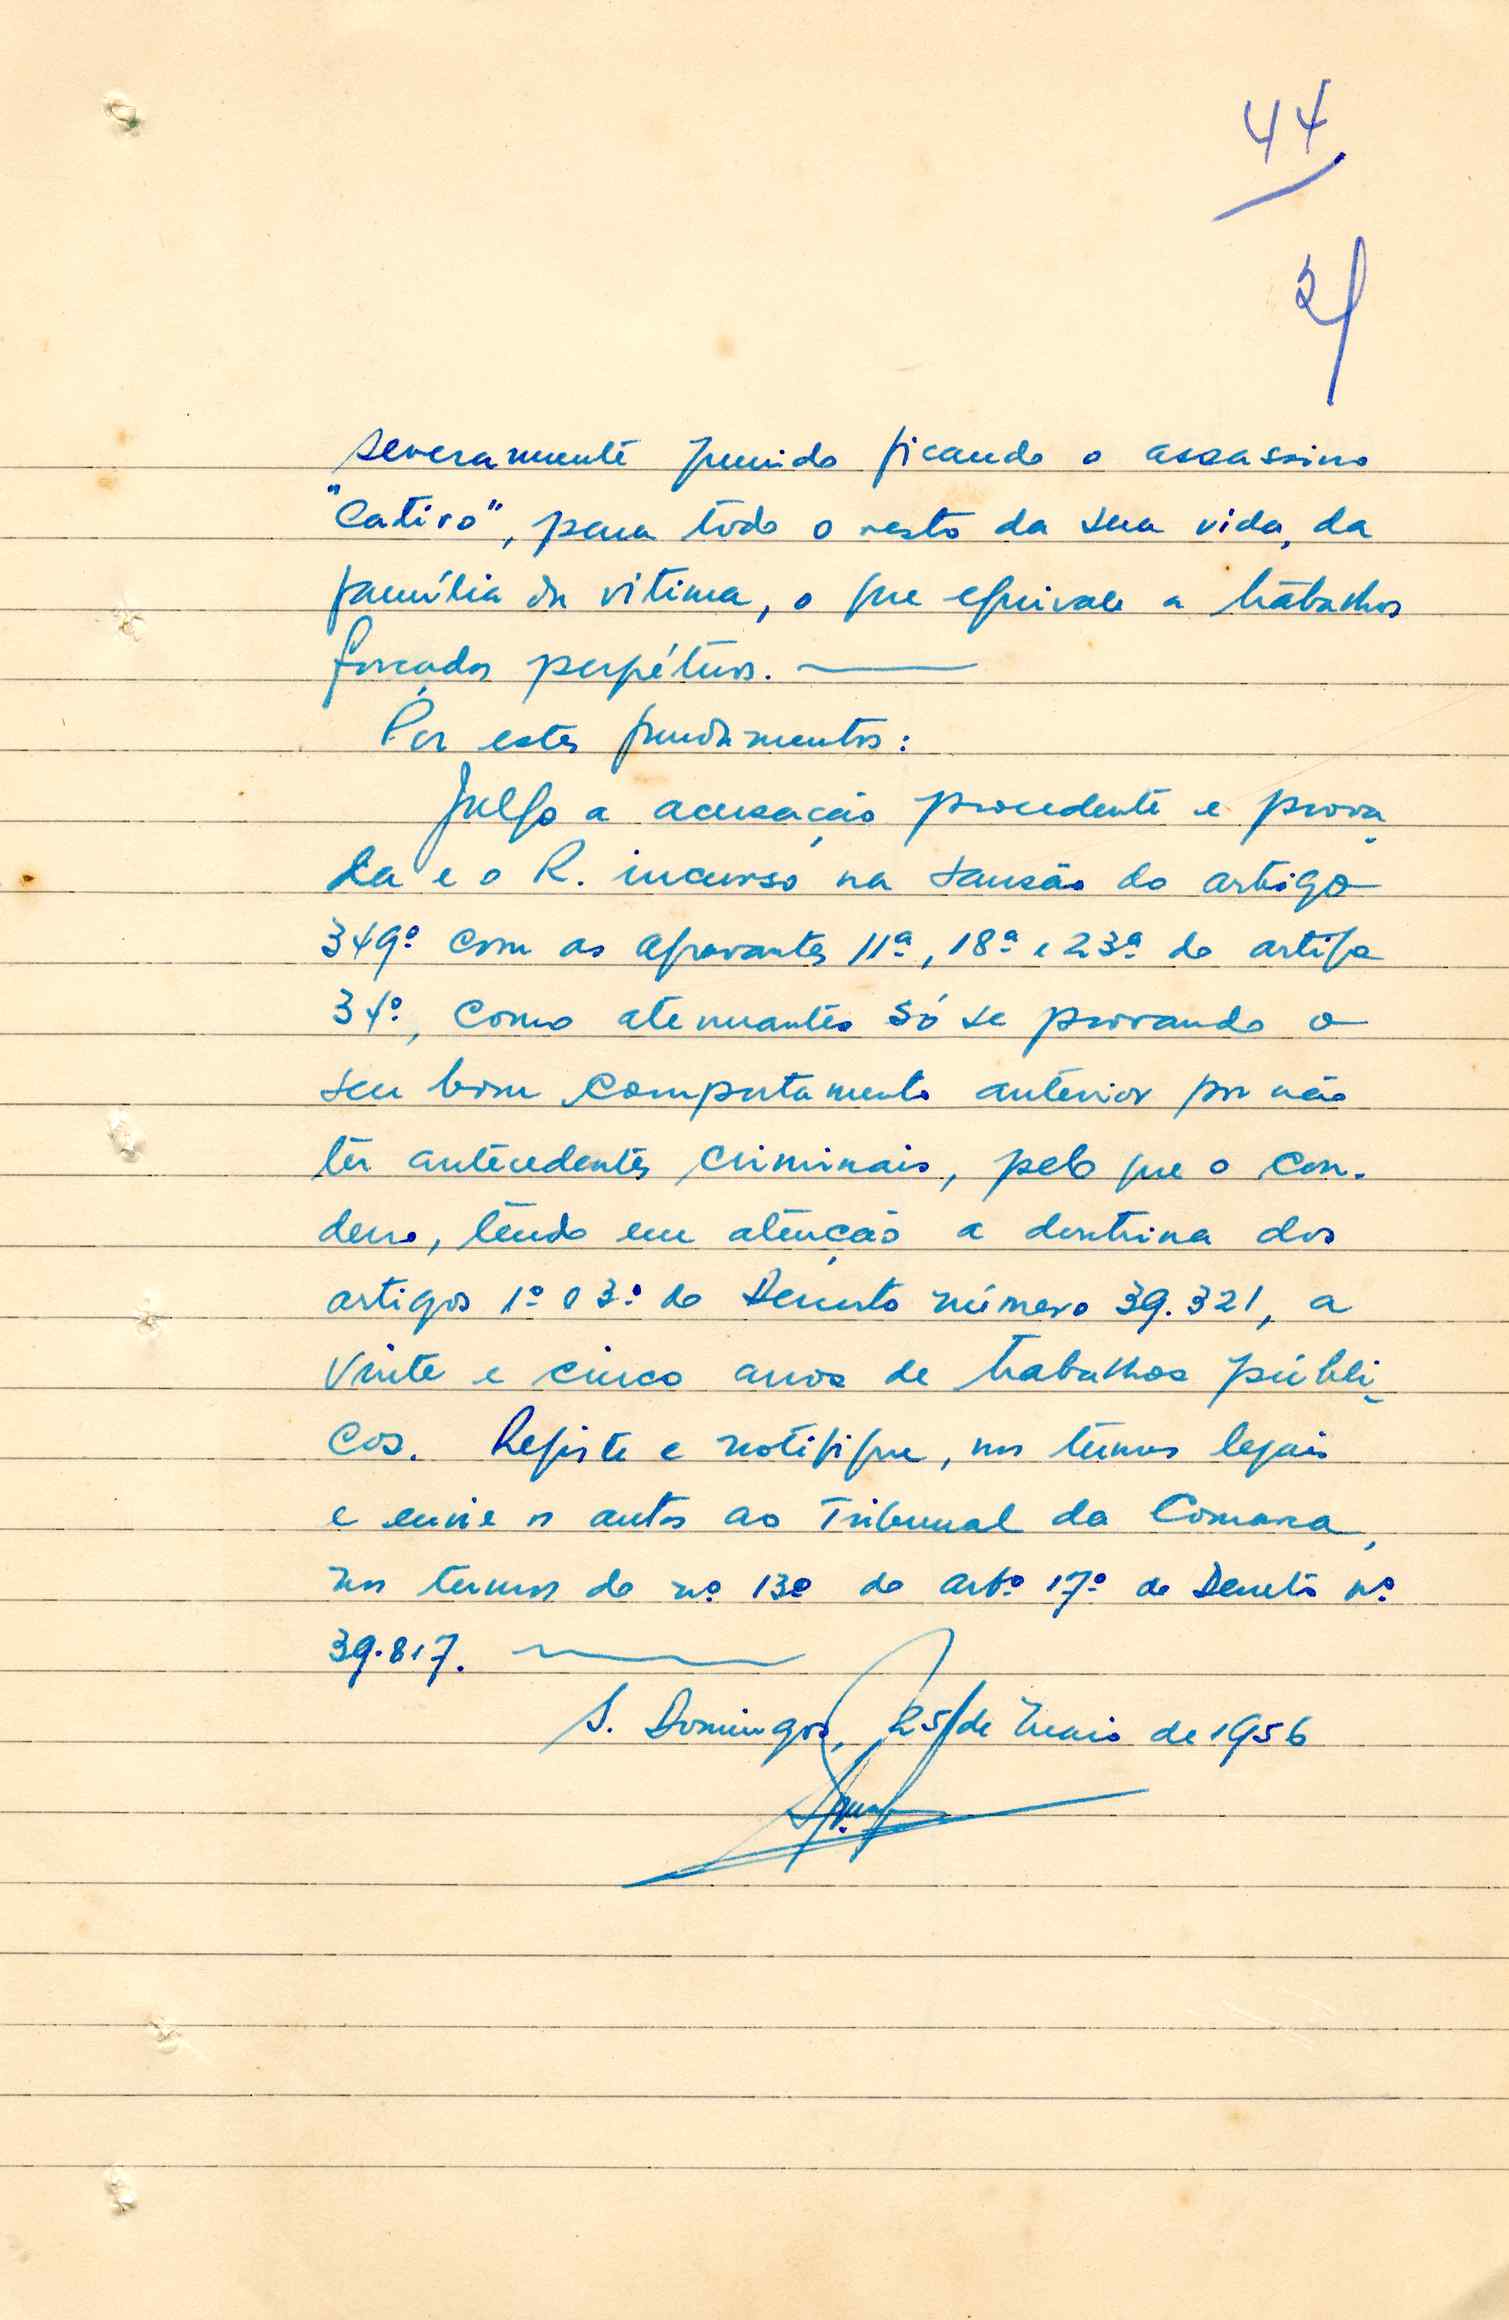 44
severamente punido ficando o assassino
"Cativo", para todo o resto da sua vida, da
família da vitima, o que equivale a trabalhos
forçados perpétuos.
Por estes fundamentos:
Julgo a acusação procedente e prova-
da e o R. incurso na sansão do artigo
349º com as agravantes 11ª, 18ª e 23ª do artigo
34º, como atenuantes só se provando o
seu bom comportamento anterior por não
ter antecedentes criminais, pelo que o con-
deno, tendo em atenção a doutrina dos
artigos 1º e 3º do Decreto número 39.321, a
vinte e cinco anos de trabalhos públi-
cos. Registe e notifique, nos termos legais
e envie os autos ao Tribunal da Comarca,
nos termos do nº 13º do artº 17º do Decreto nº
39.817.
S. Domingos, 25 de Maio de 1956